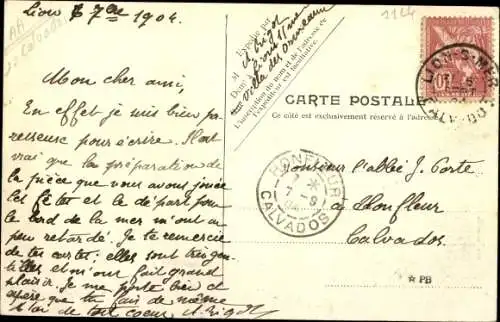 Lion le 7bre 1904.
Mon cher ami,
En effet je suis bien pa-
resseuse pour écrire. Il est
vrai que la préparation de
la pièce que nous avons jouée
les fêtes et le départ pour
le bord de la mer m'ont un
peu retardé. Je te remercie
de tes cartes; elles sont très gen-
tilles et m'ont fait grand
plaisir. Je me porte bien et
espère que tu fais de même
à toi de tout coeur,
Expédié par
M
Demt à
villa des
L'inscription du nom et de l'adresse de
l'expéditeur est facultative.
1124
CARTE POSTALE
Ce côté est exclusivement réservé à l'adresse
LION-S-MER
CALVADOS
HONFLEUR
7 -9
04
CALVADOS
Monsieur l'abbé J. Corte
à Honfleur
Calvados.
☆ PB